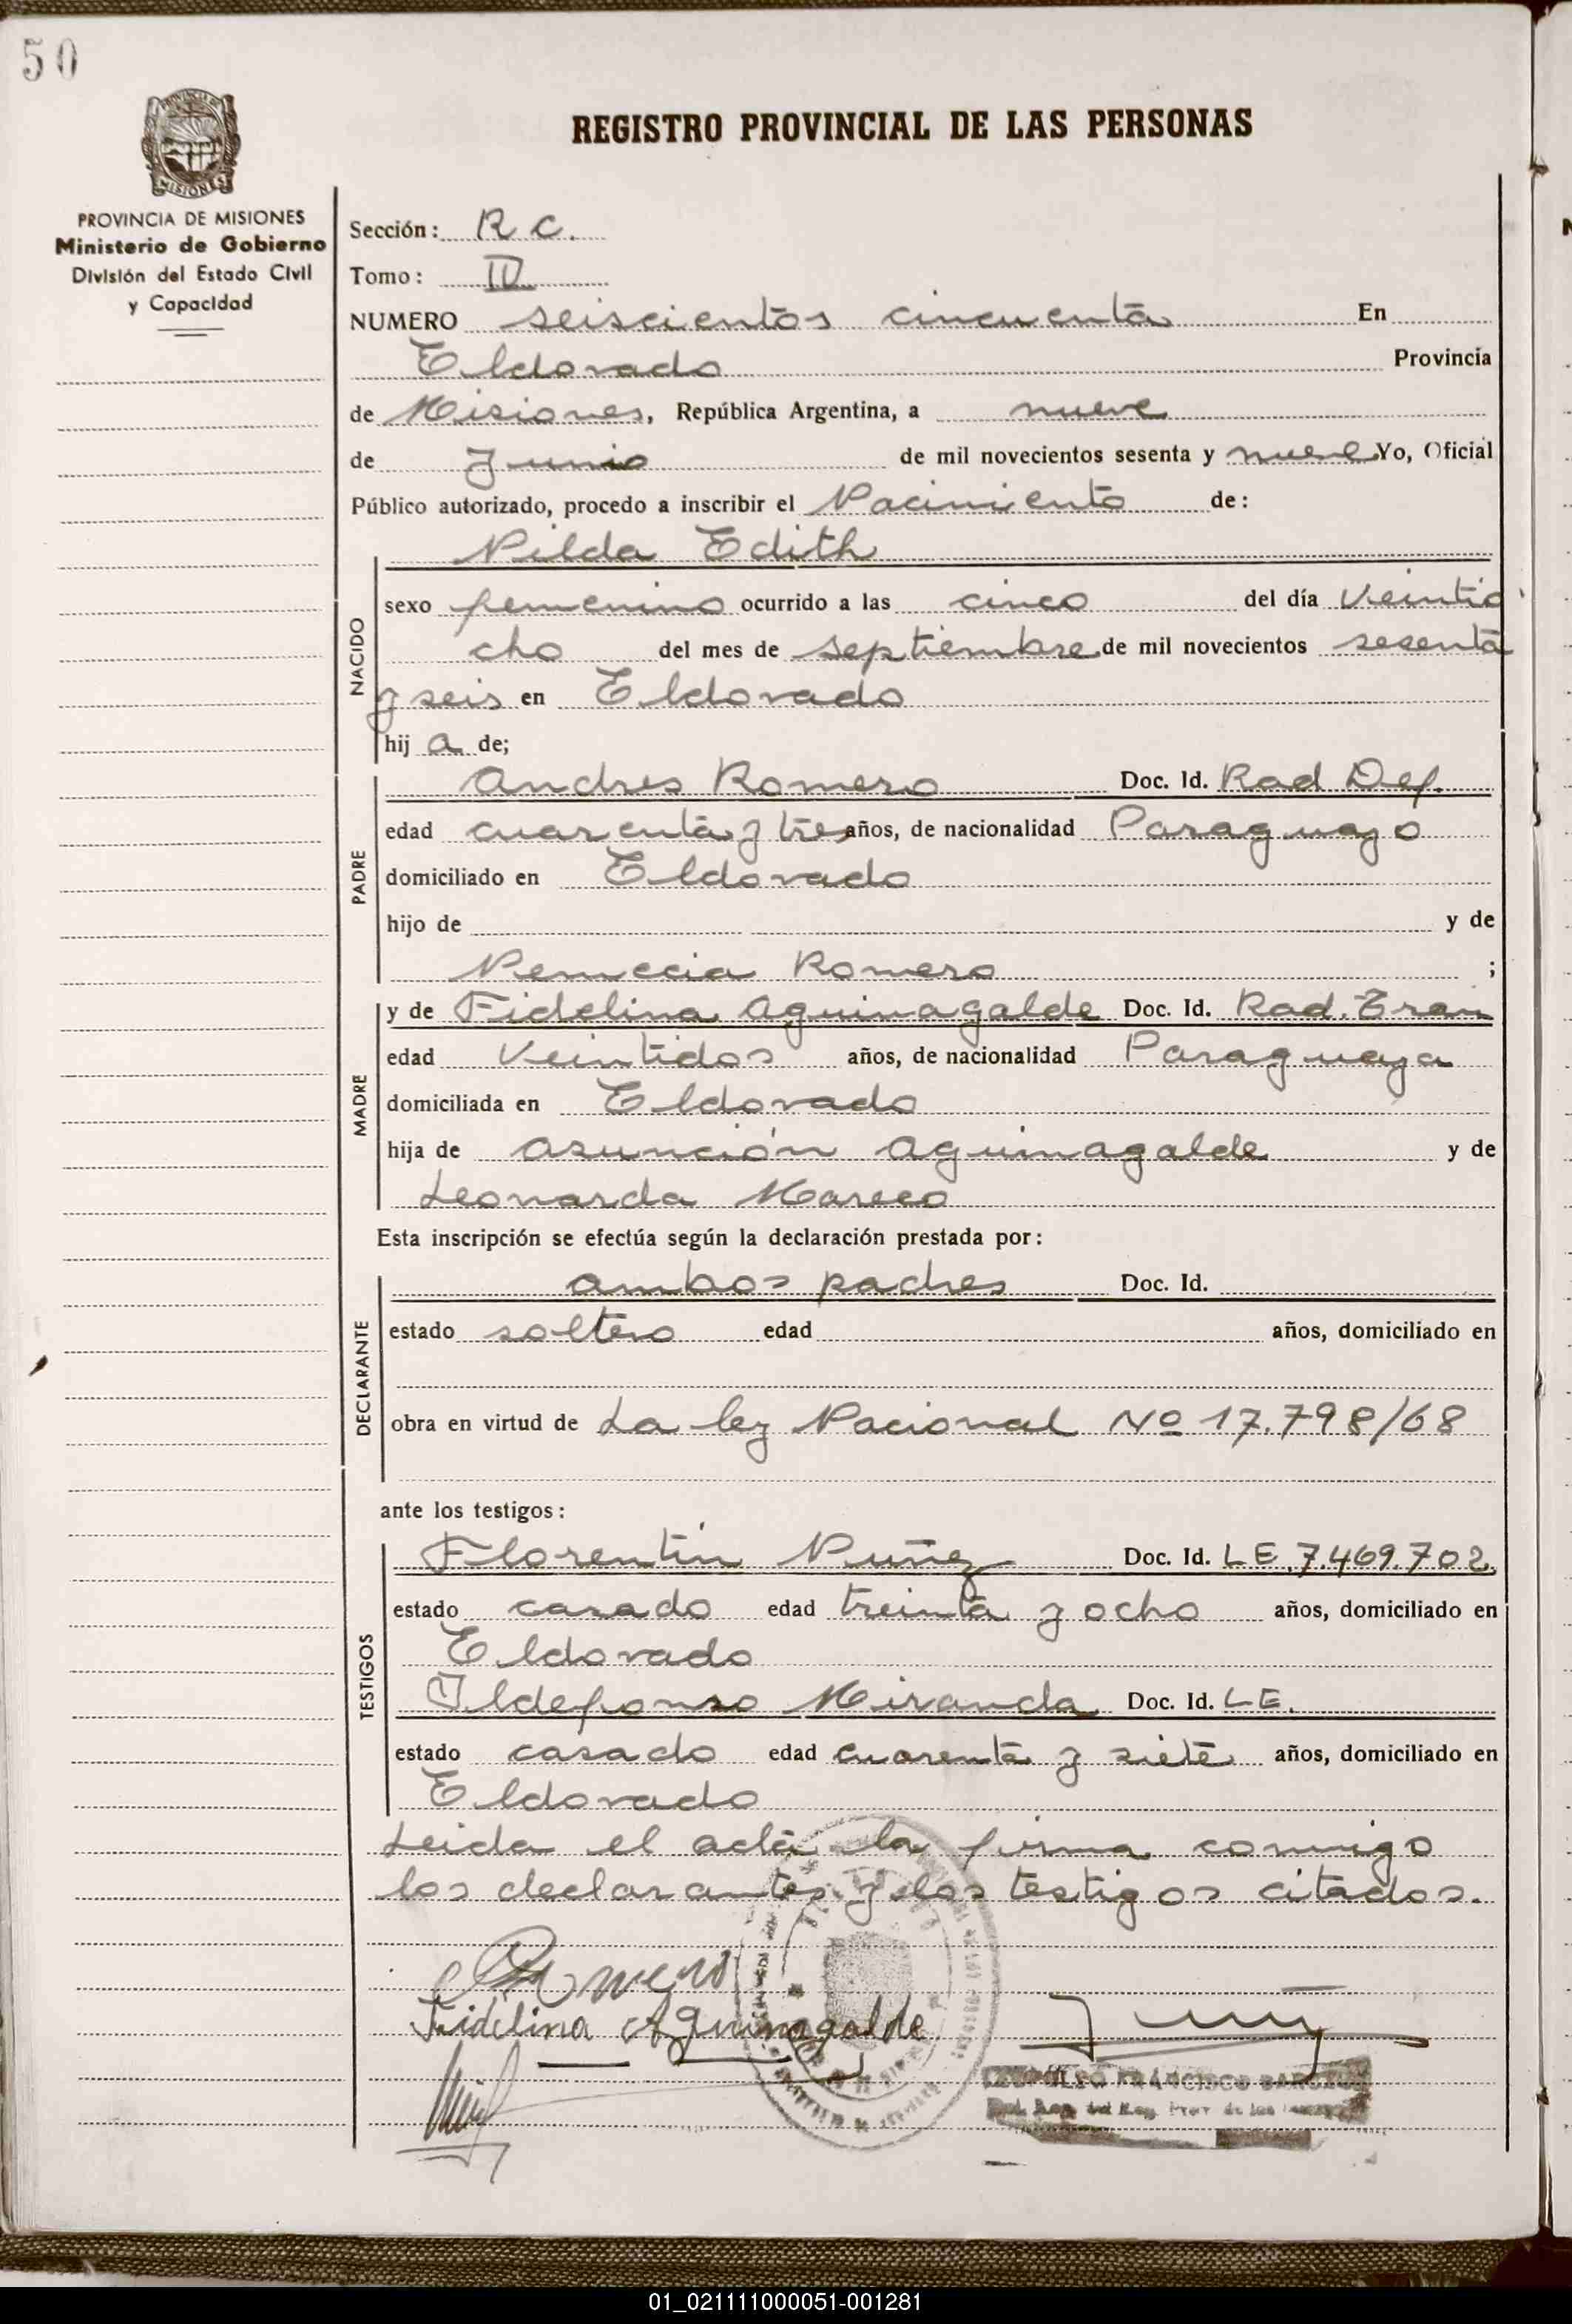 50
PROVINCIA DE MISIONES
Ministerio de Gobierno
División del Estado Civil
y Capacidad
REGISTRO PROVINCIAL DE LAS PERSONAS
Sección: R C.
Tomo: IV
NUMERO seiscientos cincuenta En
Eldorado Provincia
de Misiones, República Argentina, a nueve
de Junio de mil novecientos sesenta y nueve Yo, Oficial
Público autorizado, procedo a inscribir el Nacimiento de:
Nilda Edith
NACIDO
sexo femenino ocurrido a las cinco del día Veintio
cho del mes de septiembre de mil novecientos sesenta
y seis en Eldorado
hij a de;
PADRE
Andres Romero Doc. Id. Rad Def.
edad cuarenta y tres años, de nacionalidad Paraguayo
domiciliado en Eldorado
hijo de y de
Nemecia Romero ;
MADRE
y de Fidelina Aguinagalde Doc. Id. Rad. Tran
edad Veintidos años, de nacionalidad Paraguaya
domiciliada en Eldorado
hija de Asunción Aguinagalde y de
Leonarda Mareco
Esta inscripción se efectúa según la declaración prestada por:
DECLARANTE
ambos padres Doc. Id.
estado soltero edad años, domiciliado en
obra en virtud de La ley Nacional Nº 17.798/68
ante los testigos:
TESTIGOS
Florentín Nuñez Doc. Id. LE. 7.469.702.
estado casado edad treinta y ocho años, domiciliado en
Eldorado
Ildefonso Miranda Doc. Id. LE.
estado casado edad cuarenta y siete años, domiciliado en
Eldorado
Leida el acta la firma conmigo
los declarantes y los testigos citados.
Romero
Fidelina Aguinagalde
FRANCISCO
01_021111000051-001281